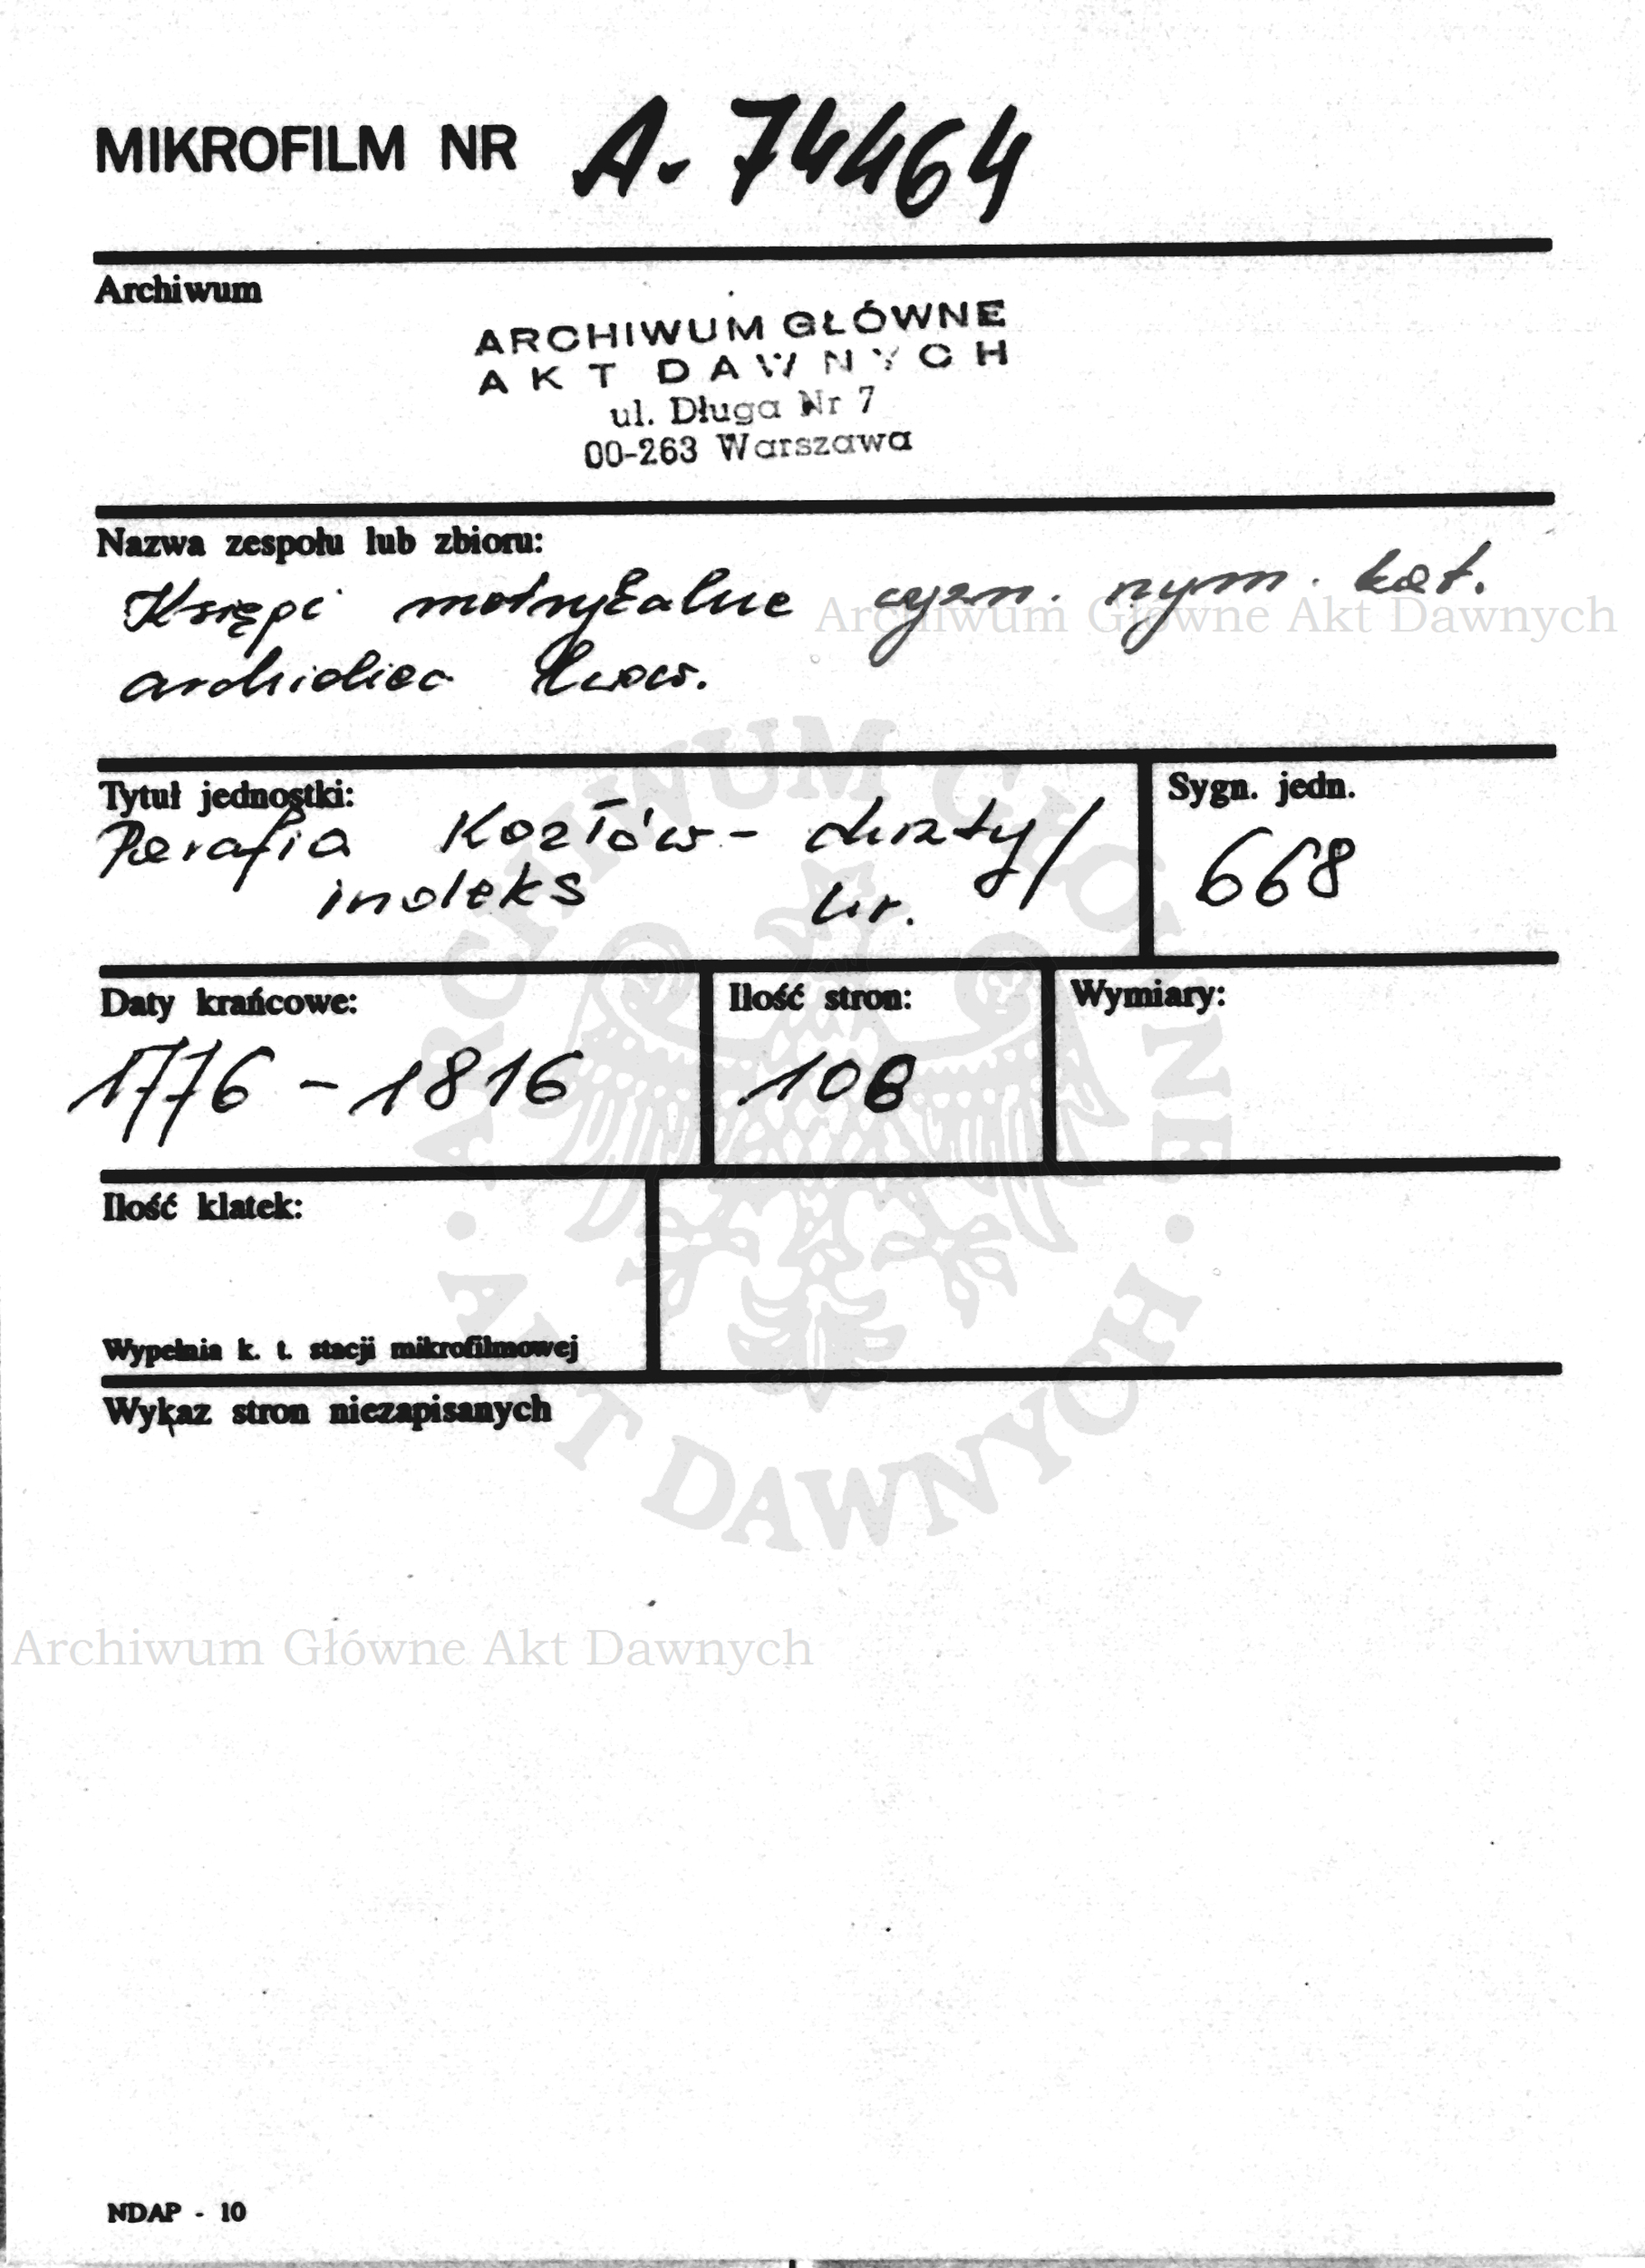 MIKROFILM NR A-74464
Archiwum
ARCHIWUM GŁÓWNE
AKT DAWNYCH
ul. Długa Nr 7
00-263 Warszawa
Nazwa zespołu lub zbioru:
Księgi metrykalne wyzn. rzym. kat.
Archiwum Główne Akt Dawnych
archidiec Lwow.
Tytuł jednostki:
Parafia Kozłów - chrzty/
indeks ur.
Sygn. jedn.
668
Daty krańcowe:
1776 - 1816
Ilość stron:
108
Wymiary:
Ilość klatek:
Wypełnia k. t. stacji mikrofilmowej
Wykaz stron niezapisanych
ARCHIWUM GŁÓWNE
AKT DAWNYCH
Archiwum Główne Akt Dawnych
NDAP - 10